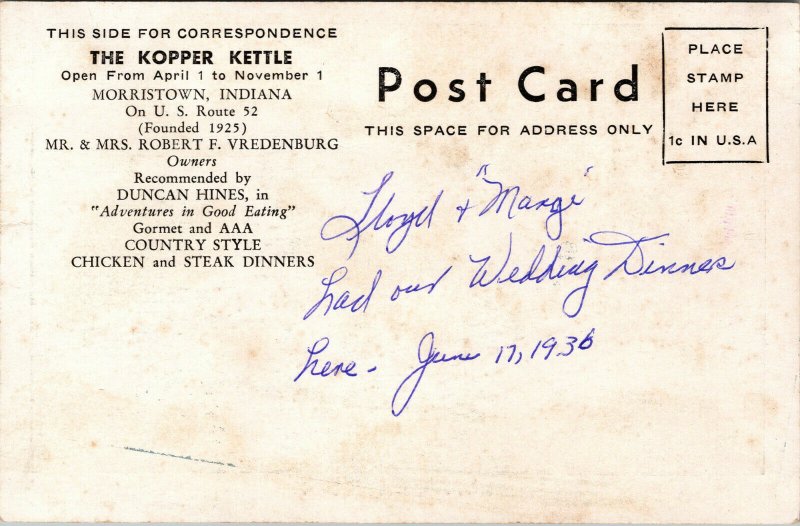 THIS SIDE FOR CORRESPONDENCE
THE KOPPER KETTLE
Open From April 1 to November 1
MORRISTOWN, INDIANA
On U. S. Route 52
(Founded 1925)
MR. & MRS. ROBERT F. VREDENBURG
Owners
Recommended by
DUNCAN HINES, in
"Adventures in Good Eating"
Gormet and AAA
COUNTRY STYLE
CHICKEN and STEAK DINNERS
Post Card
THIS SPACE FOR ADDRESS ONLY
PLACE
STAMP
HERE
1c IN U.S.A
Lloyd + "Marge"
had our Wedding Dinner
here - June 17, 1936